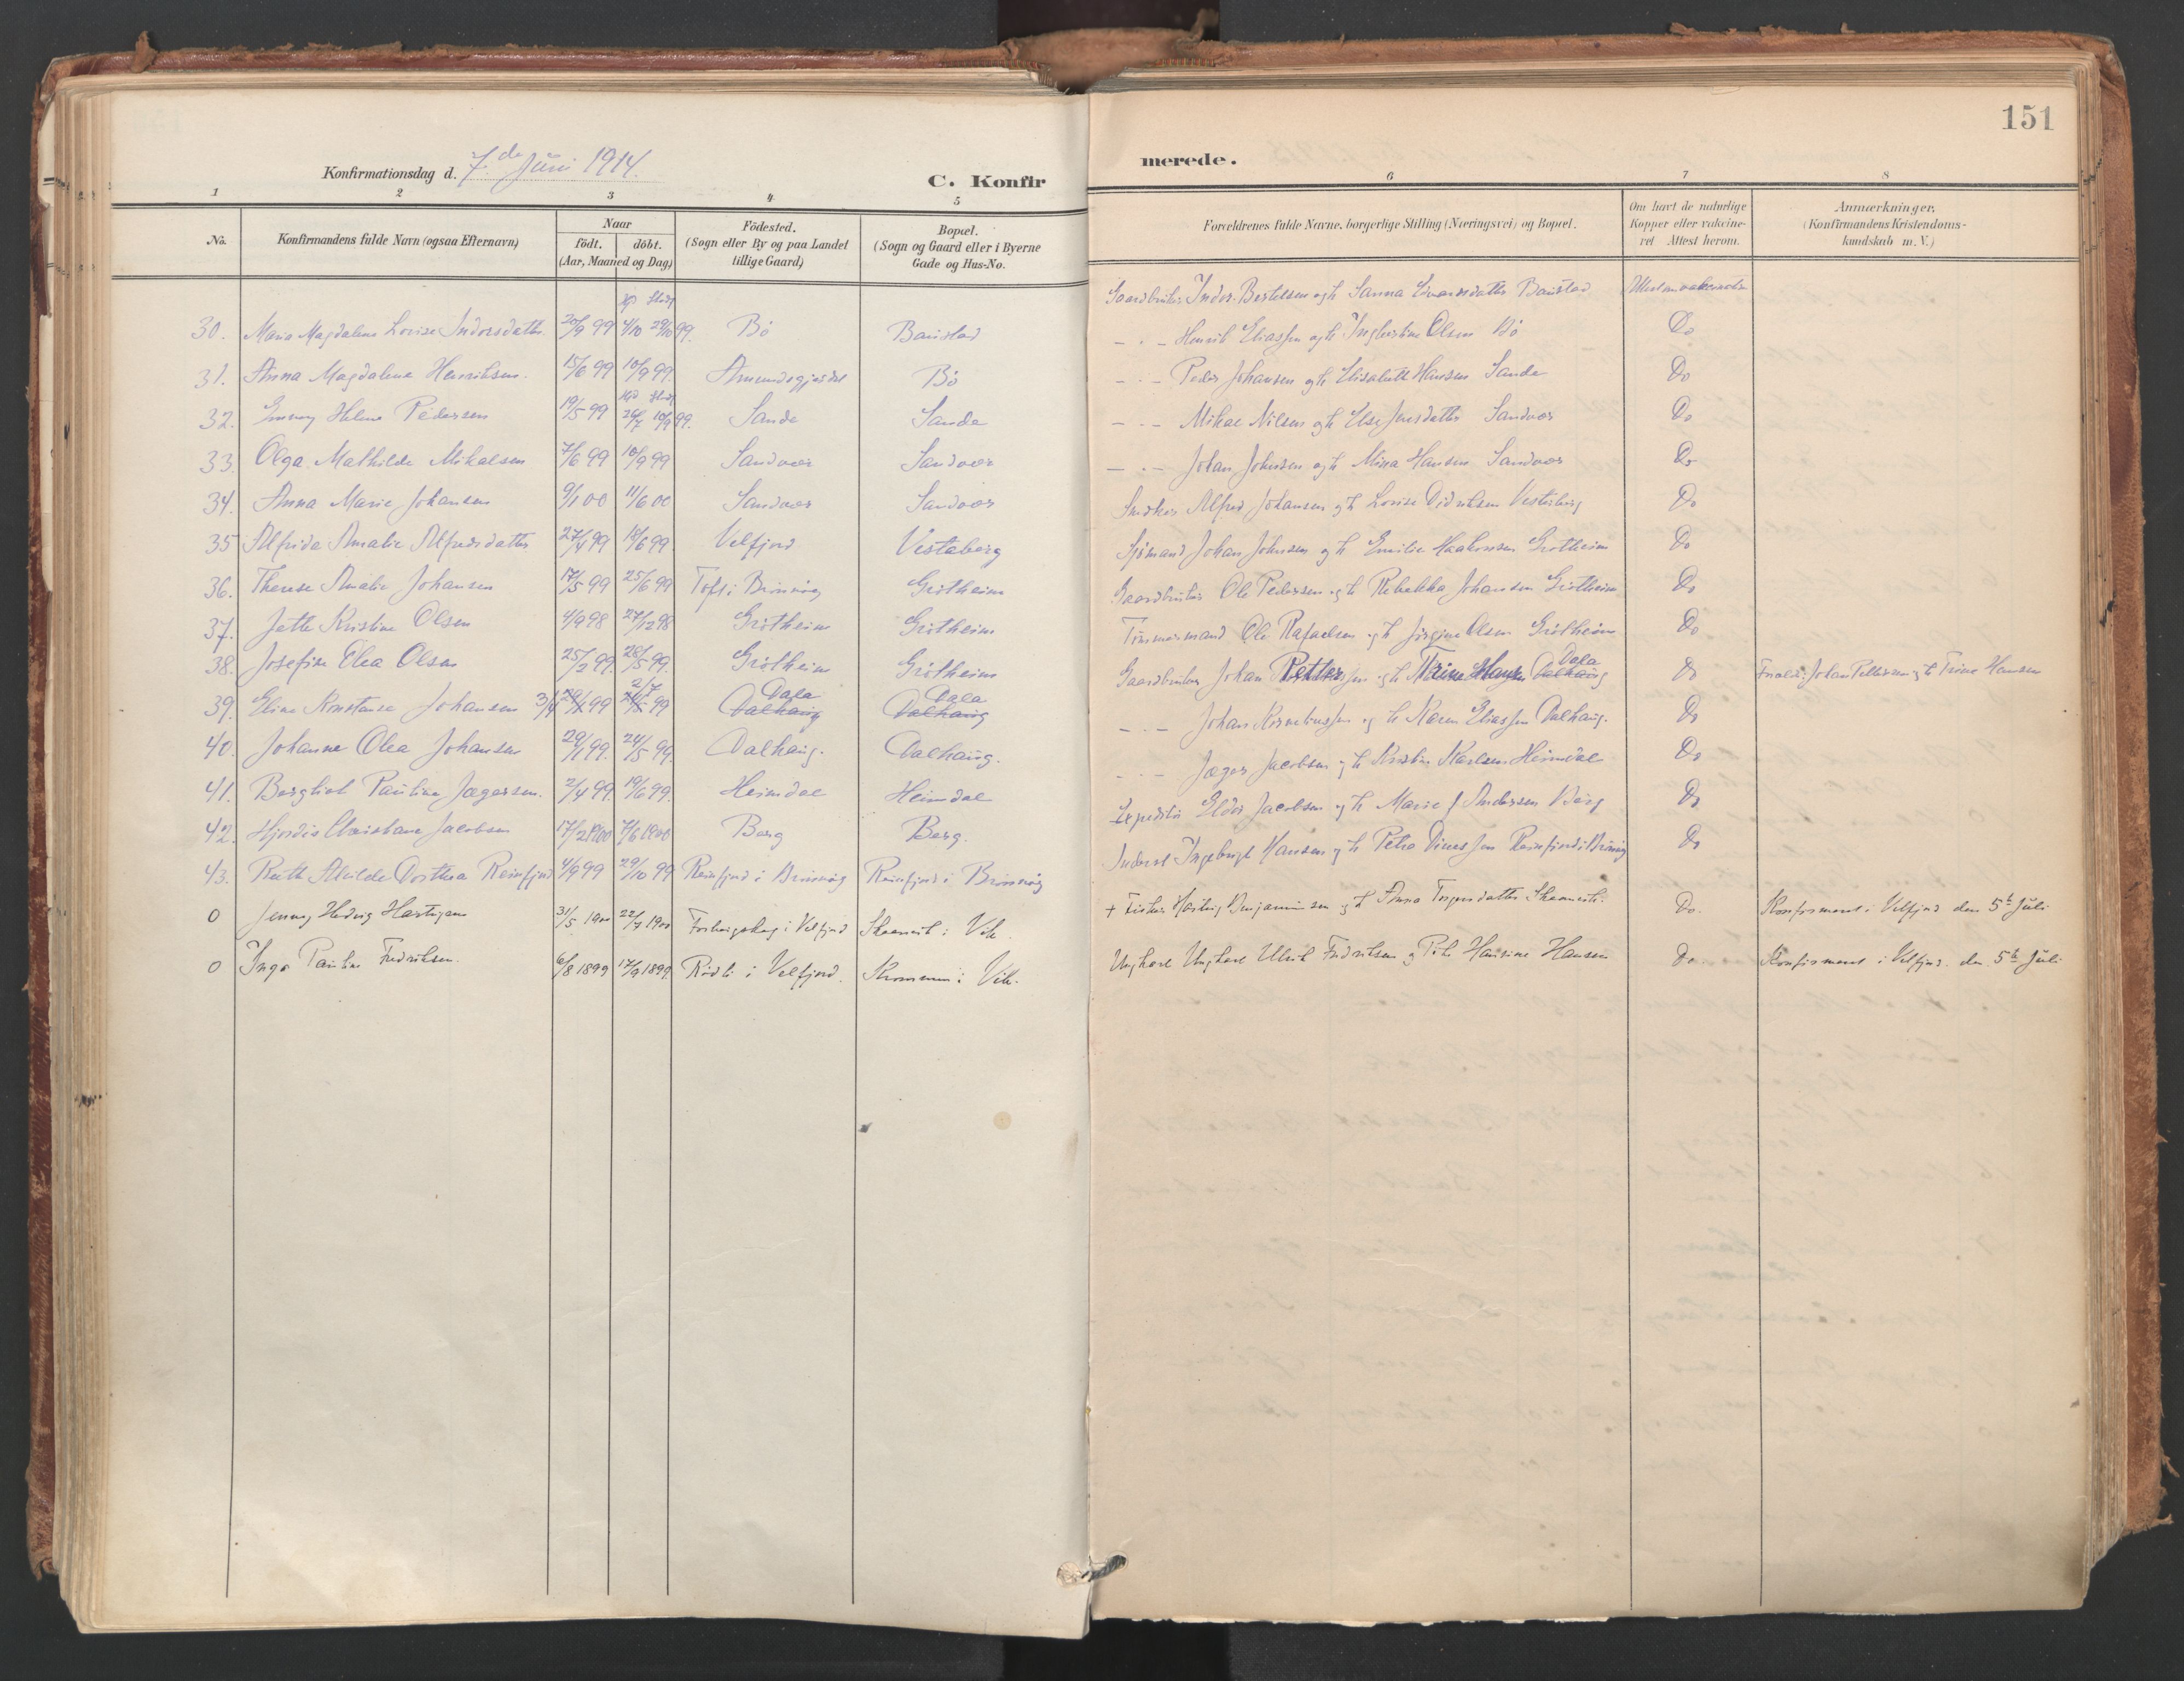 151
Konfirmationsdag d. 7.de Juni 1914.
C. Konfir
merede.
1 2 3 4 5 6 7 8
No.
Konfirmandens fulde Navn (ogsaa Efternavn)
Naar
födt. döbt.
(Aar, Maaned og Dag)
Födested.
(Sogn eller By og paa Landet
tillige Gaard)
Bopæl.
(Sogn og Gaard eller i Byerne
Gade og Hus-No.
Forældrenes fulde Navne, borgerlige Stilling (Næringsvei) og Bopæl.
Om havt de naturlige
Kopper eller vakcine-
ret Attest herom.
Anmærkninger.
(Konfirmandens Kristendoms-
kundskab m. V.)
30. Maria Magdalena Lovise Indorsdatter 20/9 99 4/10 29/10 99. Bö Baustad Gaardbruker Indor Bertelsen og h Sanna Baustad
31. Anna Magdalena Henriksen. 15/6 99 10/9 99. Bö - " - Henrik Eliassen og h Olsen Bö Do
32. Emmy Helene Pedersen 19/5 99 24/7 10/9 99. Sande Sande - " - Peder Johansen og h Elisabeth Hansen Sande Do
33. Olga Mathilde Mikalsen 7/6 99 10/9 99 Sandvær Sandvær - " - Mikal Nilsen og h Else Jensdatter Sandvær Do
34. Anna Marie Johansen 9/1 00 11/6 00 Sandvær Sandvær - " - Johan Johnsen og h Mina Hansen Sandvær Do
35 Alfrida Amalie Alfredsdatter 27/4 99 18/6 99. Velfjord Vestaberg Snedker Alfred Johansen og h Lovise Didriksen Vestaberg Do
36. Therese Amalie Johansen 17/5 99 25/6 99 Toft i Brönnöy Grötheim Sjömand Johan Johnsen og h Emilie Haakonsen Grötheim Do
37. Jette Kristine Olsen 4/9 98 27/12 98 Grötheim Grötheim Gaardbruker Ole Pedersen og h Rebekka Johansen Grötheim Do
38. Josefine Elea Olsen 25/2 99. 28/5 99. Grötheim Grötheim Tömmermand Ole Rafaelsen og h Jörgine Olsen Grötheim Do
39. Eline Konstanse Johansen 3/4 99 2/7 99 Dala Dalhaug Dala Dalhaug Gaardbruker Johan Pettersen og h Trine Hansen Dala Dalhaug Do Johan Pettersen og h Trine Hansen
40. Johanna Olea Johansen 29/1 99. 24/5 99. Dalhaug. Dalhaug. - " - Johan Korneliussen og h Karen Eliassen Dalhaug. Do
41. Borghild Pauline Jægersen. 2/4 99. 19/6 99. Heimdal Heimdal - " - Jæger Jacobsen og h Kristine Karlsen Heimdal Do
42. Hjördis Christiane Jacobsen 17/2 1900 7/6 1900 Berg Berg. Expeditör Eldor Jacobsen og h Marie J Andersen Berg Do
43. Ruth Alvilde Dorthea Reinfjord 4/9 99 29/10 99 Reinfjord i Brönnöy Reinfjord i Brönnöy Inderst Ingebrigt Hansen og h Petra Reinfjord i Brönnöy Do
0 Jenny Hedvig Hartvigsen 31/5 1900 22/7 1900 i Velfjord i Vik. + Fisker Hartvig Benjaminsen og h Anna Torgersdatter Do. Konfirmeret i Velfjord den 5te Juli
0 Inga Pauline Fredriksen. 6/8 1899 17/9 1899. Rödli i Velfjord. i Vik. Ungkarl Ulrik Fredriksen og Pike Hansine Hansen Do. Konfirmeret i Velfjord. den 5te Juli